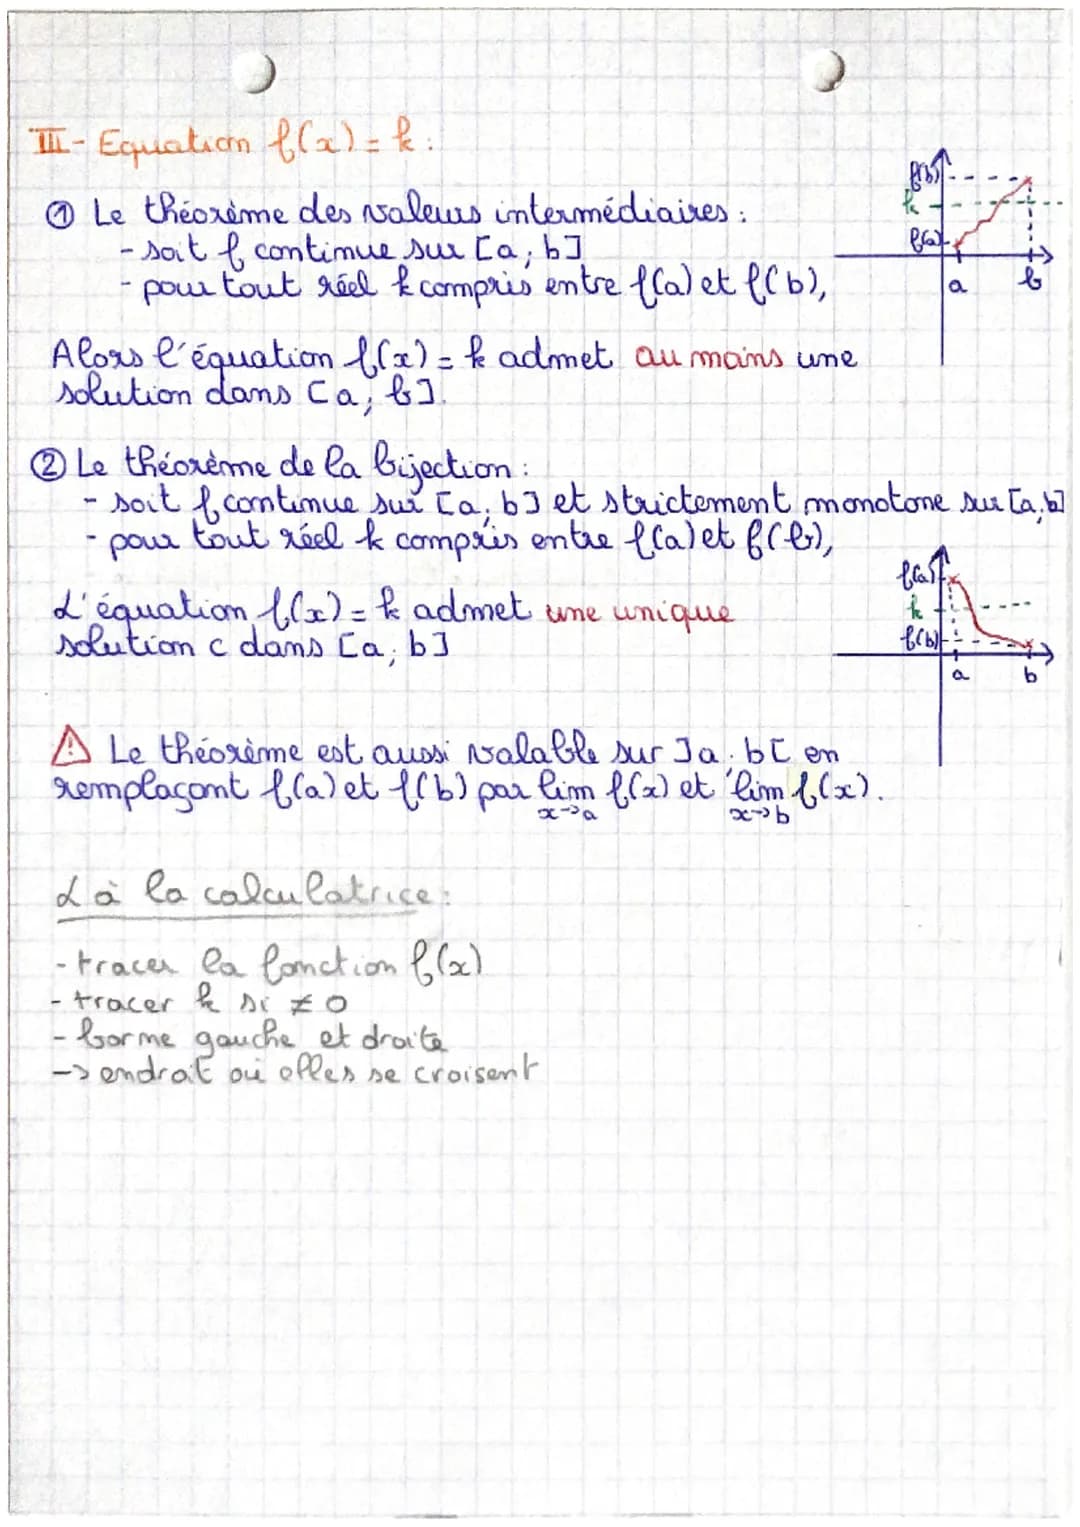 III- Equation f(x) = k :
① Le théorème des valeurs intermédiaires :
- soit f continue sur [a ; b]
- pour tout réel k compris entre f(a) et f(b),
f(b)
k
f(a)
a
b
Alors l'équation f(x) = k admet au moins une
solution dans [a ; b].
② Le théorème de la bijection :
- soit f continue sur [a ; b] et strictement monotone sur [a,b]
- pour tout réel k compris entre f(a) et f(b),
L'équation f(x) = k admet une unique
solution c dans [a ; b]
f(a)
k
f(b)
a
b
⚠ Le théorème est aussi valable sur ]a ; b[ en
remplaçant f(a) et f(b) par lim f(x) et lim f(x).
x→a x→b
L à la calculatrice :
- tracer la fonction f(x)
- tracer k si ≠ 0
- borme gauche et droite
-> endroit où elles se croisent